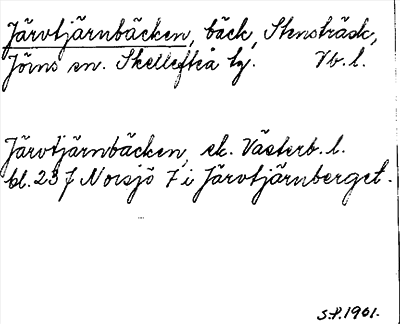 Järvtjärnbäcken, bäck, Stensträsk,
Jörns sn. Skellefteå tg. Vb. l.
Järvtjärnbäcken, ek. Västerb. l.
bl. 237 Norsjö 7 i Järvtjärnberget.
S.P. 1961.